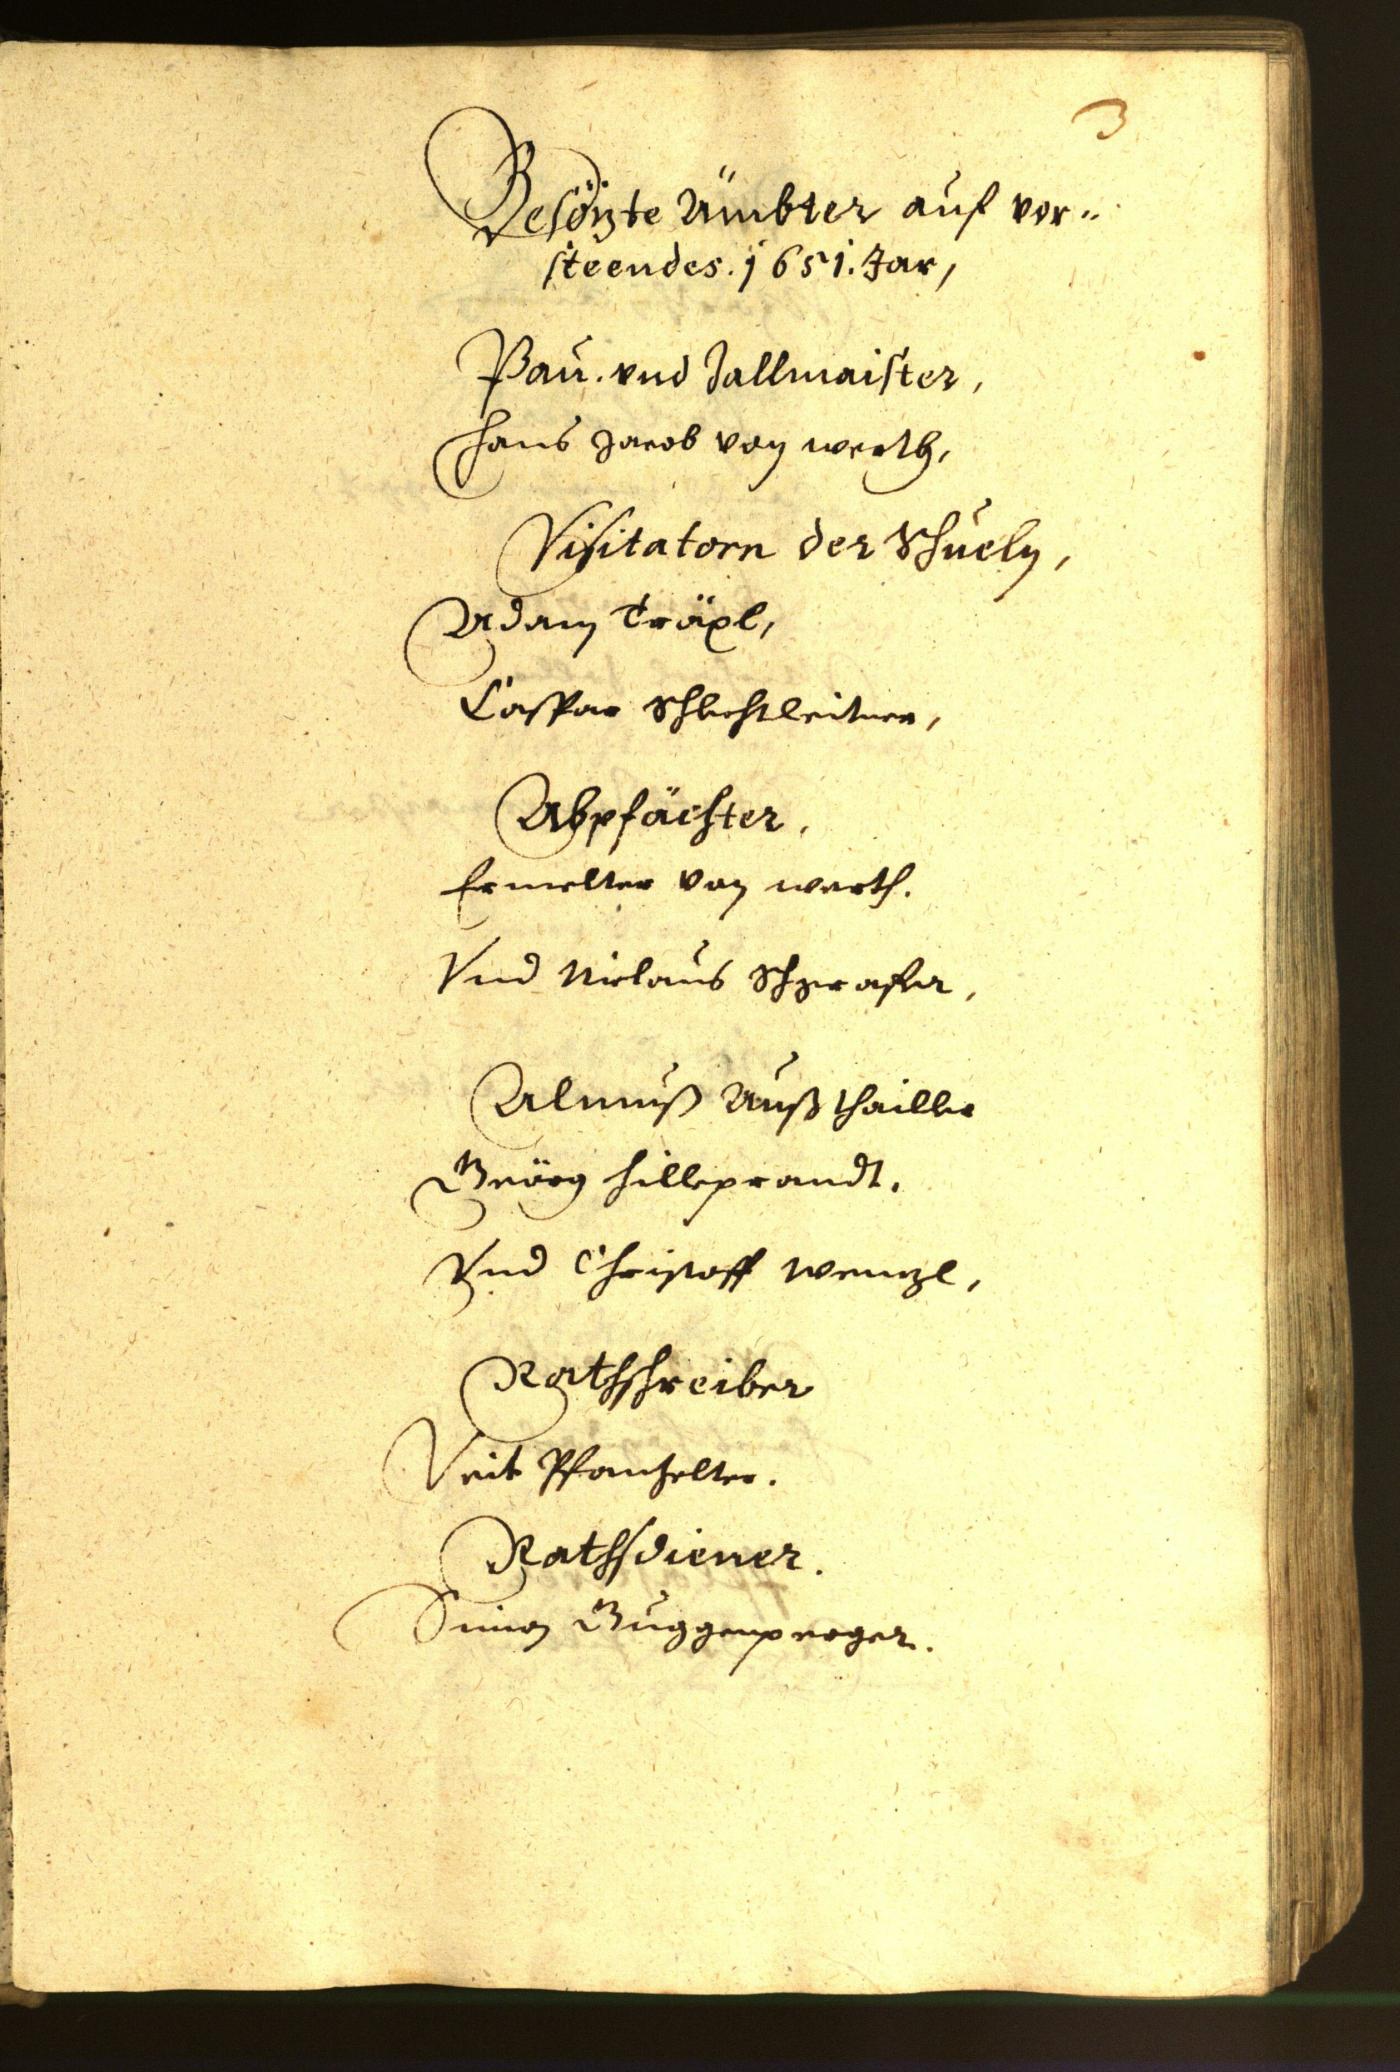 3
Besözte Ämbter auf vor=
steendes. 1651. Jar,
Pau. vnd Zallmaister,
Hans Jacob von Werth,
Visitatorn der Schueln,
Adam Träxl,
Caspar Schlechtleitner,
Abpfächter.
Ermelter von Werth.
Vnd Niclaus Schgrafer,
Almuß Außthailler
Geörg Hilleprandt.
Vnd Christoff Wenzl,
Rathschreiber
Veit Pfanzelter.
Rathsdiener.
Simon Guggenperger.